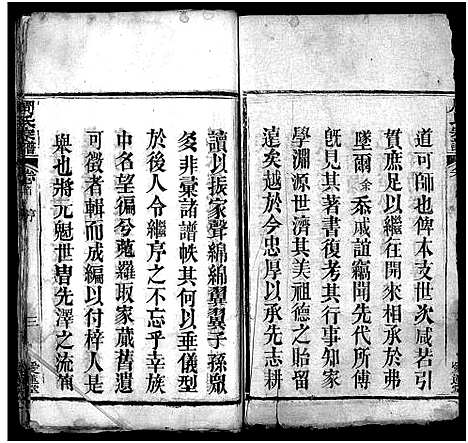 道可師也俾本支世次咸若引
貫庶足以繼往開來相承於弗
墜爾余忝戚誼竊聞先代所傳
既見其著書復考其行事知家
學淵源世濟其美祖德之貽留
遠矣越於今忠厚以承先志耕
讀以振家聲綿綿翼翼子孫嶽
多非彙諸譜帙其何以垂儀型
於後人令繼序之不忘乎幸族
中名望徧兮蒐羅取家蔵舊遺
可徵者輯而成編以付梓人是
舉也將元魁世胄先澤之流簡
周氏宗譜
三